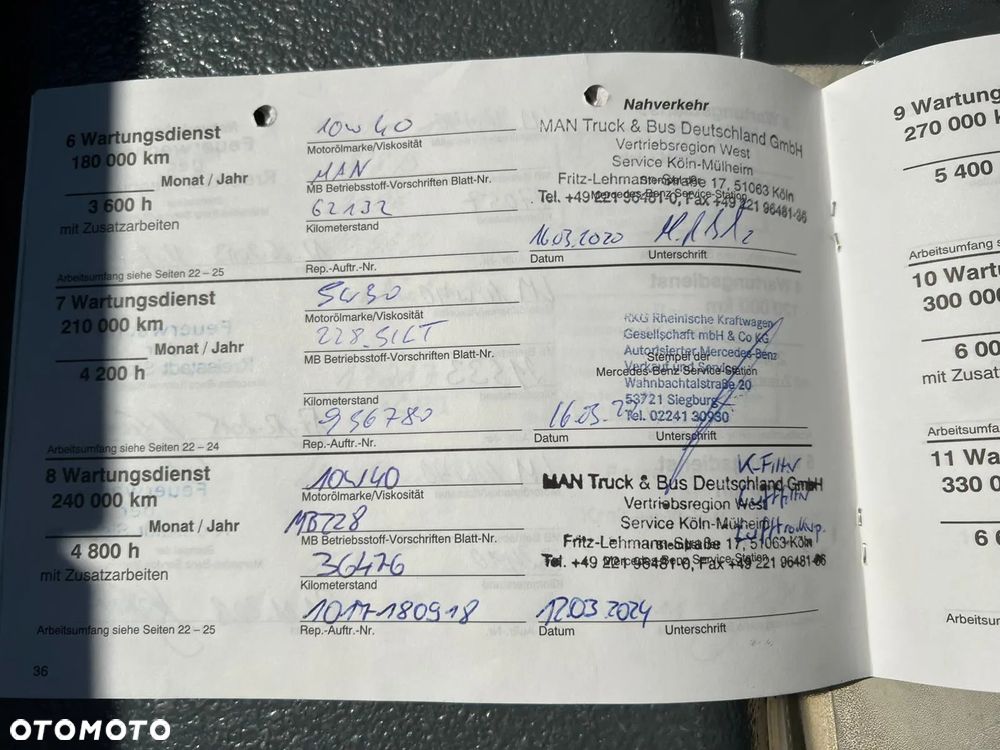 6 Wartungsdienst
180 000 km
Monat / Jahr
3 600 h
mit Zusatzarbeiten
Arbeitsumfang siehe Seiten 22 – 25
10W40
Motorölmarke/Viskosität
MAN
MB Betriebsstoff-Vorschriften Blatt-Nr.
62132
Kilometerstand
Rep.-Auftr.-Nr.
Nahverkehr
MAN Truck & Bus Deutschland GmbH
Vertriebsregion West
Service Köln-Mülheim
Fritz-Lehmann-Straße 17, 51063 Köln
Stempel der
Tel. +49 221 96481-0, Fax +49 221 96481-86
Mercedes-Benz Service-Station
16.03.2020
Datum
Unterschrift
7 Wartungsdienst
210 000 km
Monat / Jahr
4 200 h
Arbeitsumfang siehe Seiten 22 – 24
5W30
Motorölmarke/Viskosität
MB Betriebsstoff-Vorschriften Blatt-Nr.
Kilometerstand
956780
Rep.-Auftr.-Nr.
RKG Rheinische Kraftwagen
Gesellschaft mbH & Co KG
Autorisierter Mercedes-Benz
Stempel der
Verkauf und Service
Mercedes-Benz Service-Station
Wahnbachtalstraße 20
53721 Siegburg
Tel. 02241 30930
16.03.22
Datum
Unterschrift
8 Wartungsdienst
240 000 km
Monat / Jahr
4 800 h
mit Zusatzarbeiten
Arbeitsumfang siehe Seiten 22 – 25
10W40
Motorölmarke/Viskosität
MB228
MB Betriebsstoff-Vorschriften Blatt-Nr.
36476
Kilometerstand
1017-180918
Rep.-Auftr.-Nr.
K-Filter
MAN Truck & Bus Deutschland GmbH
Luftfilter
Vertriebsregion West
Service Köln-Mülheim
Fritz-Lehmann-Straße 17, 51063 Köln
Stempel der
Tel. +49 221 96481-0, Fax +49 221 96481-86
Mercedes-Benz Service-Station
12.03.2024
Datum
Unterschrift
36
9 Wartung
270 000 k
5 400
Arbeitsumfang s
10 Wartu
300 000
6 00
mit Zusat
Arbeitsumfa
11 Wa
330 0
6 6
Arbeitsum
OTOMOTO